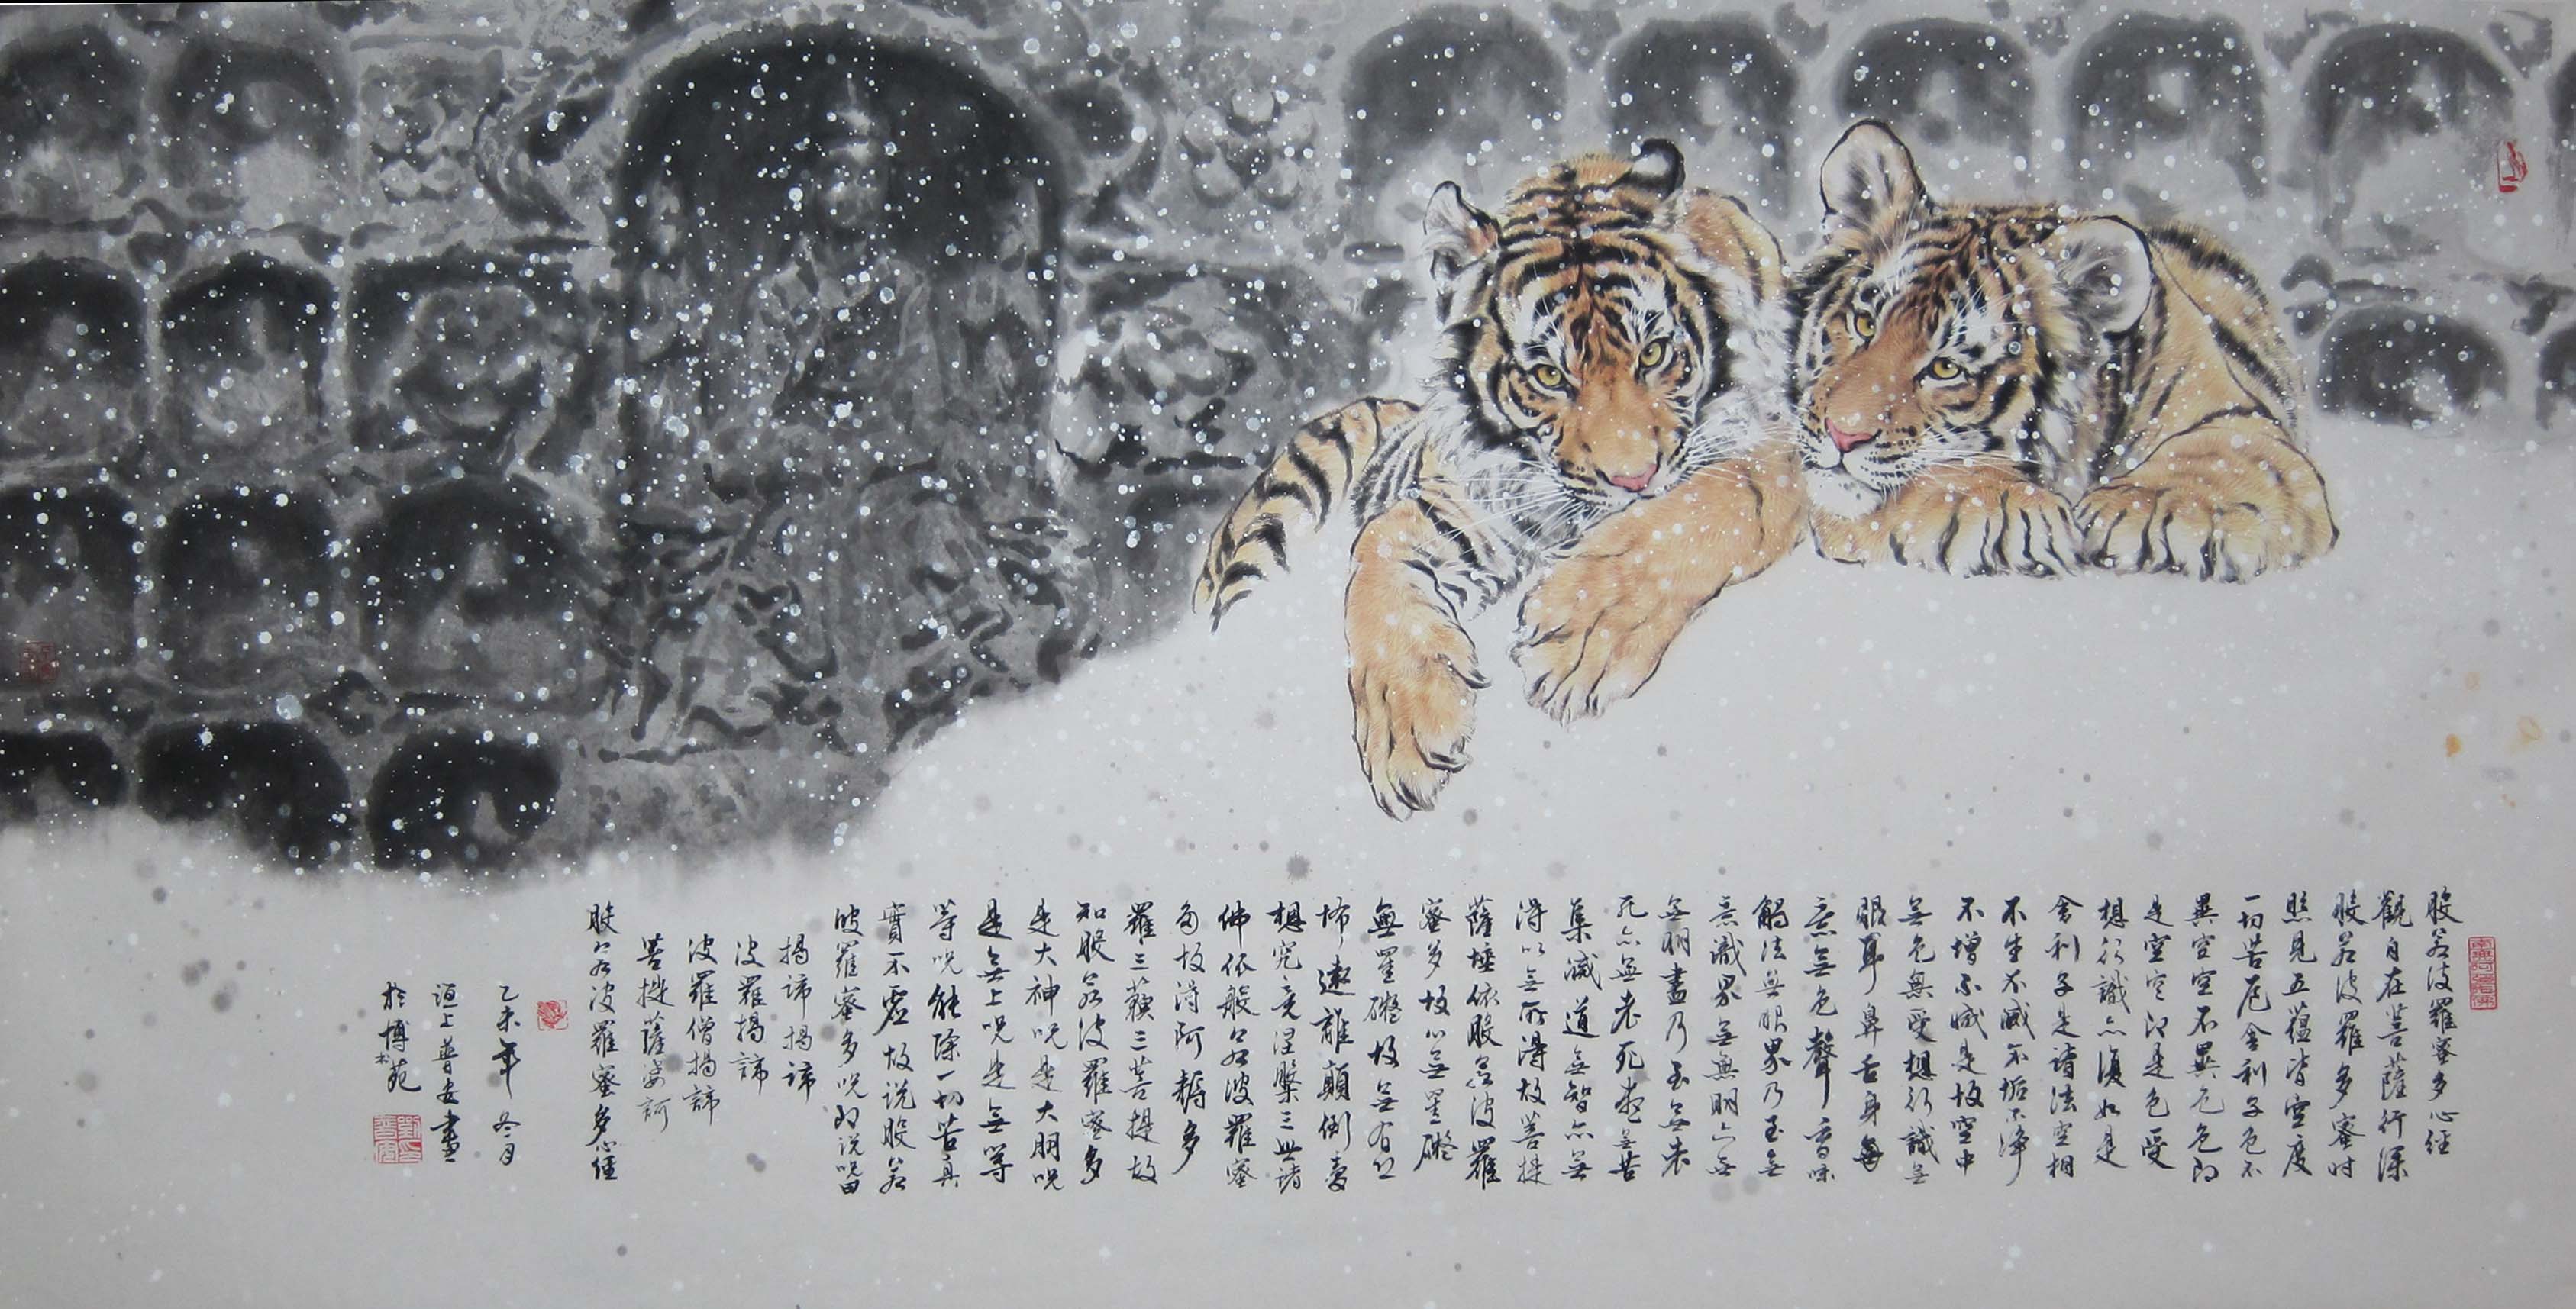 般若波羅蜜多心經
觀自在菩薩行深
般若波羅多蜜時
照見五蘊皆空度
一切苦厄舍利子色不
異空空不異色色即
是空空即是色受
想行識亦復如是
舍利子是諸法空相
不生不滅不垢不淨
不增不減是故空中
無色無受想行識無
眼耳鼻舌身
意無色聲香味
觸法無眼界乃至無
意識界無無明亦無
無明盡乃至無老
死亦無老死盡無苦
集滅道無智亦無
得以無所得故菩提
薩埵依般若波羅
蜜多故心無罣礙
無罣礙故無有恐
怖遠離顛倒夢
想究竟涅槃三世諸
佛依般若波羅蜜
多故得阿耨多
羅三藐三菩提故
知般若波羅蜜多
是大神咒是大明咒
是無上咒是無等
等咒能除一切苦真
實不虛故說般若
波羅蜜多咒即說咒曰
揭諦揭諦
波羅揭諦
波羅僧揭諦
菩提薩婆訶
般若波羅蜜多心經
乙未年冬月
上普安畫
於博木苑